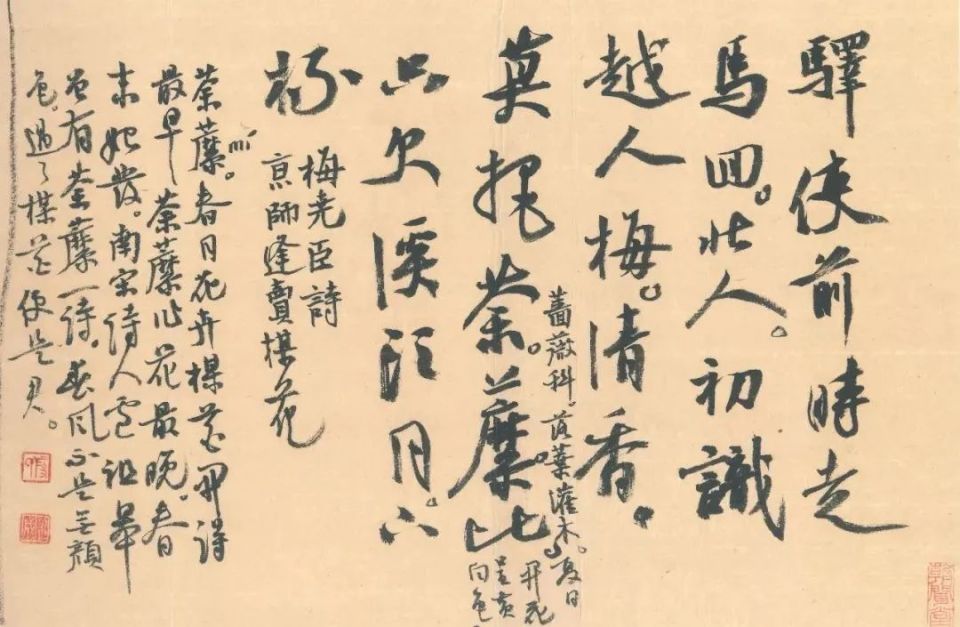 驛使前時走
馬回。北人。初識
越人梅。清香。
莫把荼。蘼比
薔薇科。落葉灌木。夏日
開花
呈黃
白色
只欠溪頭月。下
杯
梅堯臣詩
京師逢賣楳花
荼蘼。mi 春日花卉楳花開得
最早 荼蘼作花最晚。春
末始發。南宋詩人盧祖皋
曾有荼蘼一詩。春風不是無顏
色。過了楳花便是君。